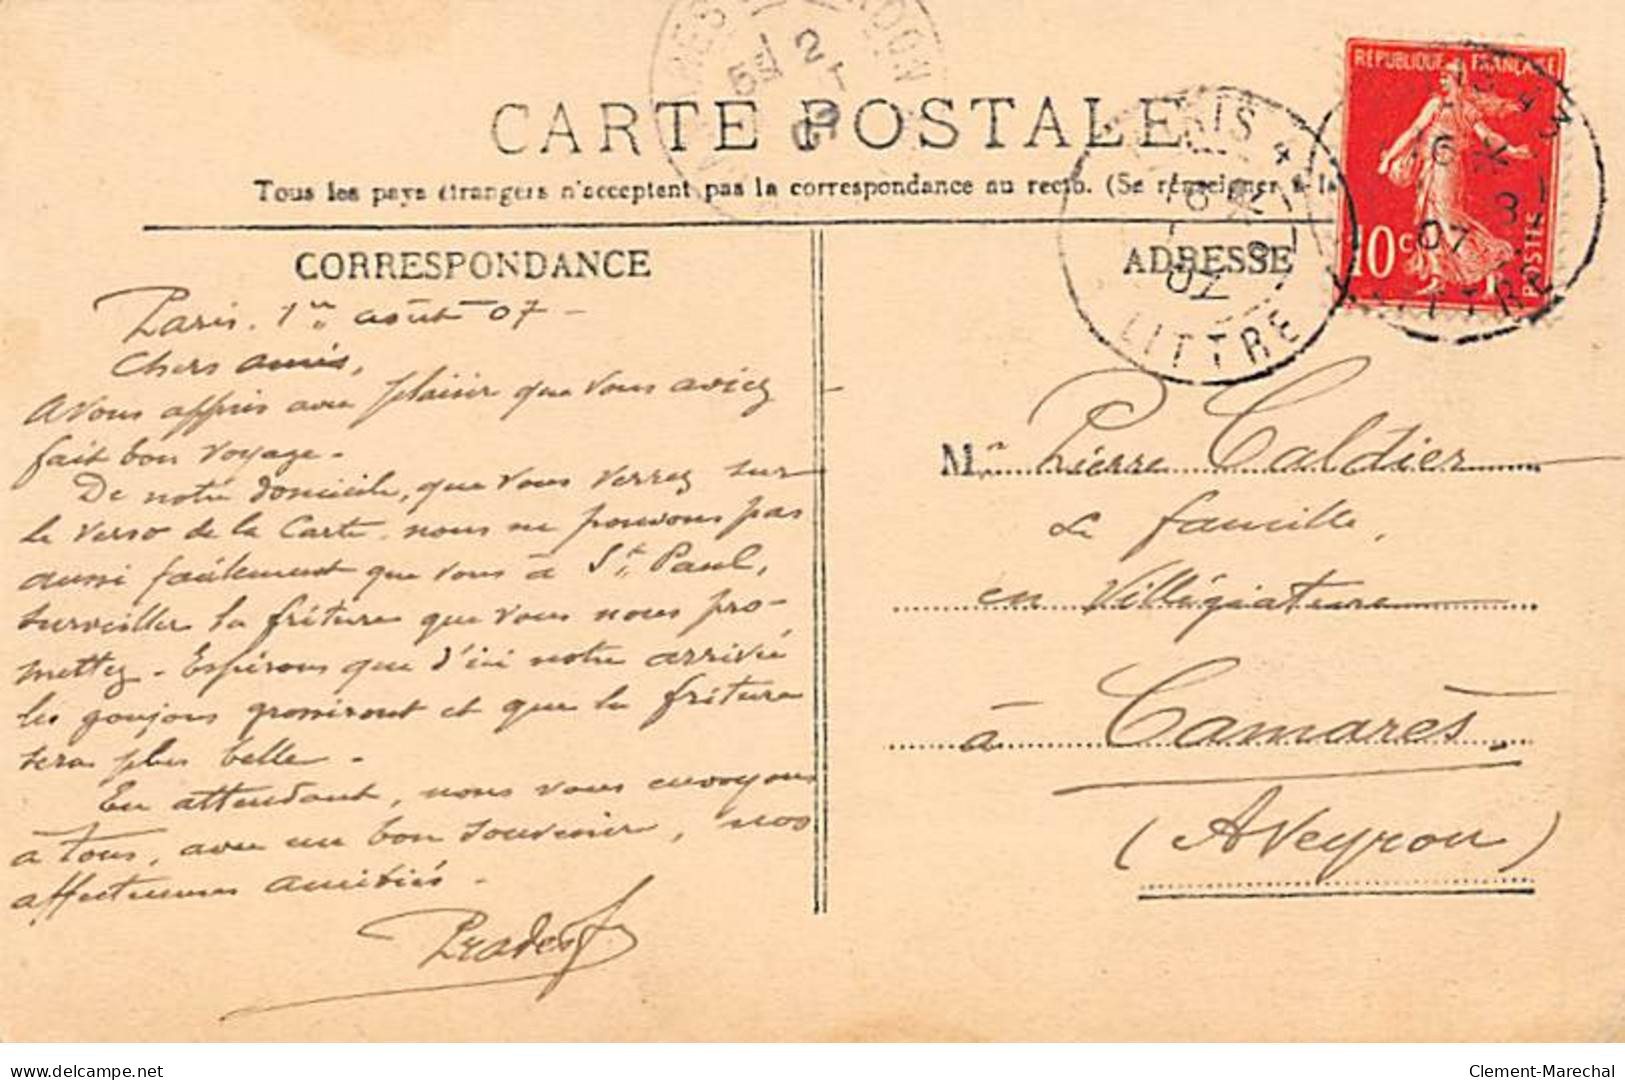 CARTE POSTALE
Tous les pays étrangers n'acceptent pas la correspondance au recto. (Se renseigner à la
CORRESPONDANCE
Paris, 1er août 07 -
Chers amis,
Avons appris avec plaisir que vous aviez
fait bon voyage -
De notre domicile, que vous verrez sur
le verso de la Carte, nous ne pouvons pas
aussi facilement que vous à St Paul,
surveiller la friture que vous nous pro-
mettez - Espérons que d'ici notre arrivée
les goujons grossiront et que la friture
sera plus belle -
En attendant, nous vous envoyons
à tous, avec un bon souvenir, nos
affectueuses amitiés -
ADRESSE
Mr Pierre Caldier
& famille,
en Villégiature
à Camarès.
(Aveyron)
RÉPUBLIQUE FRANÇAISE
10c
POSTES
PARIS 4
07
LITTRÉ
07
LITTRÉ
delcampe.net
Clement-Marechal